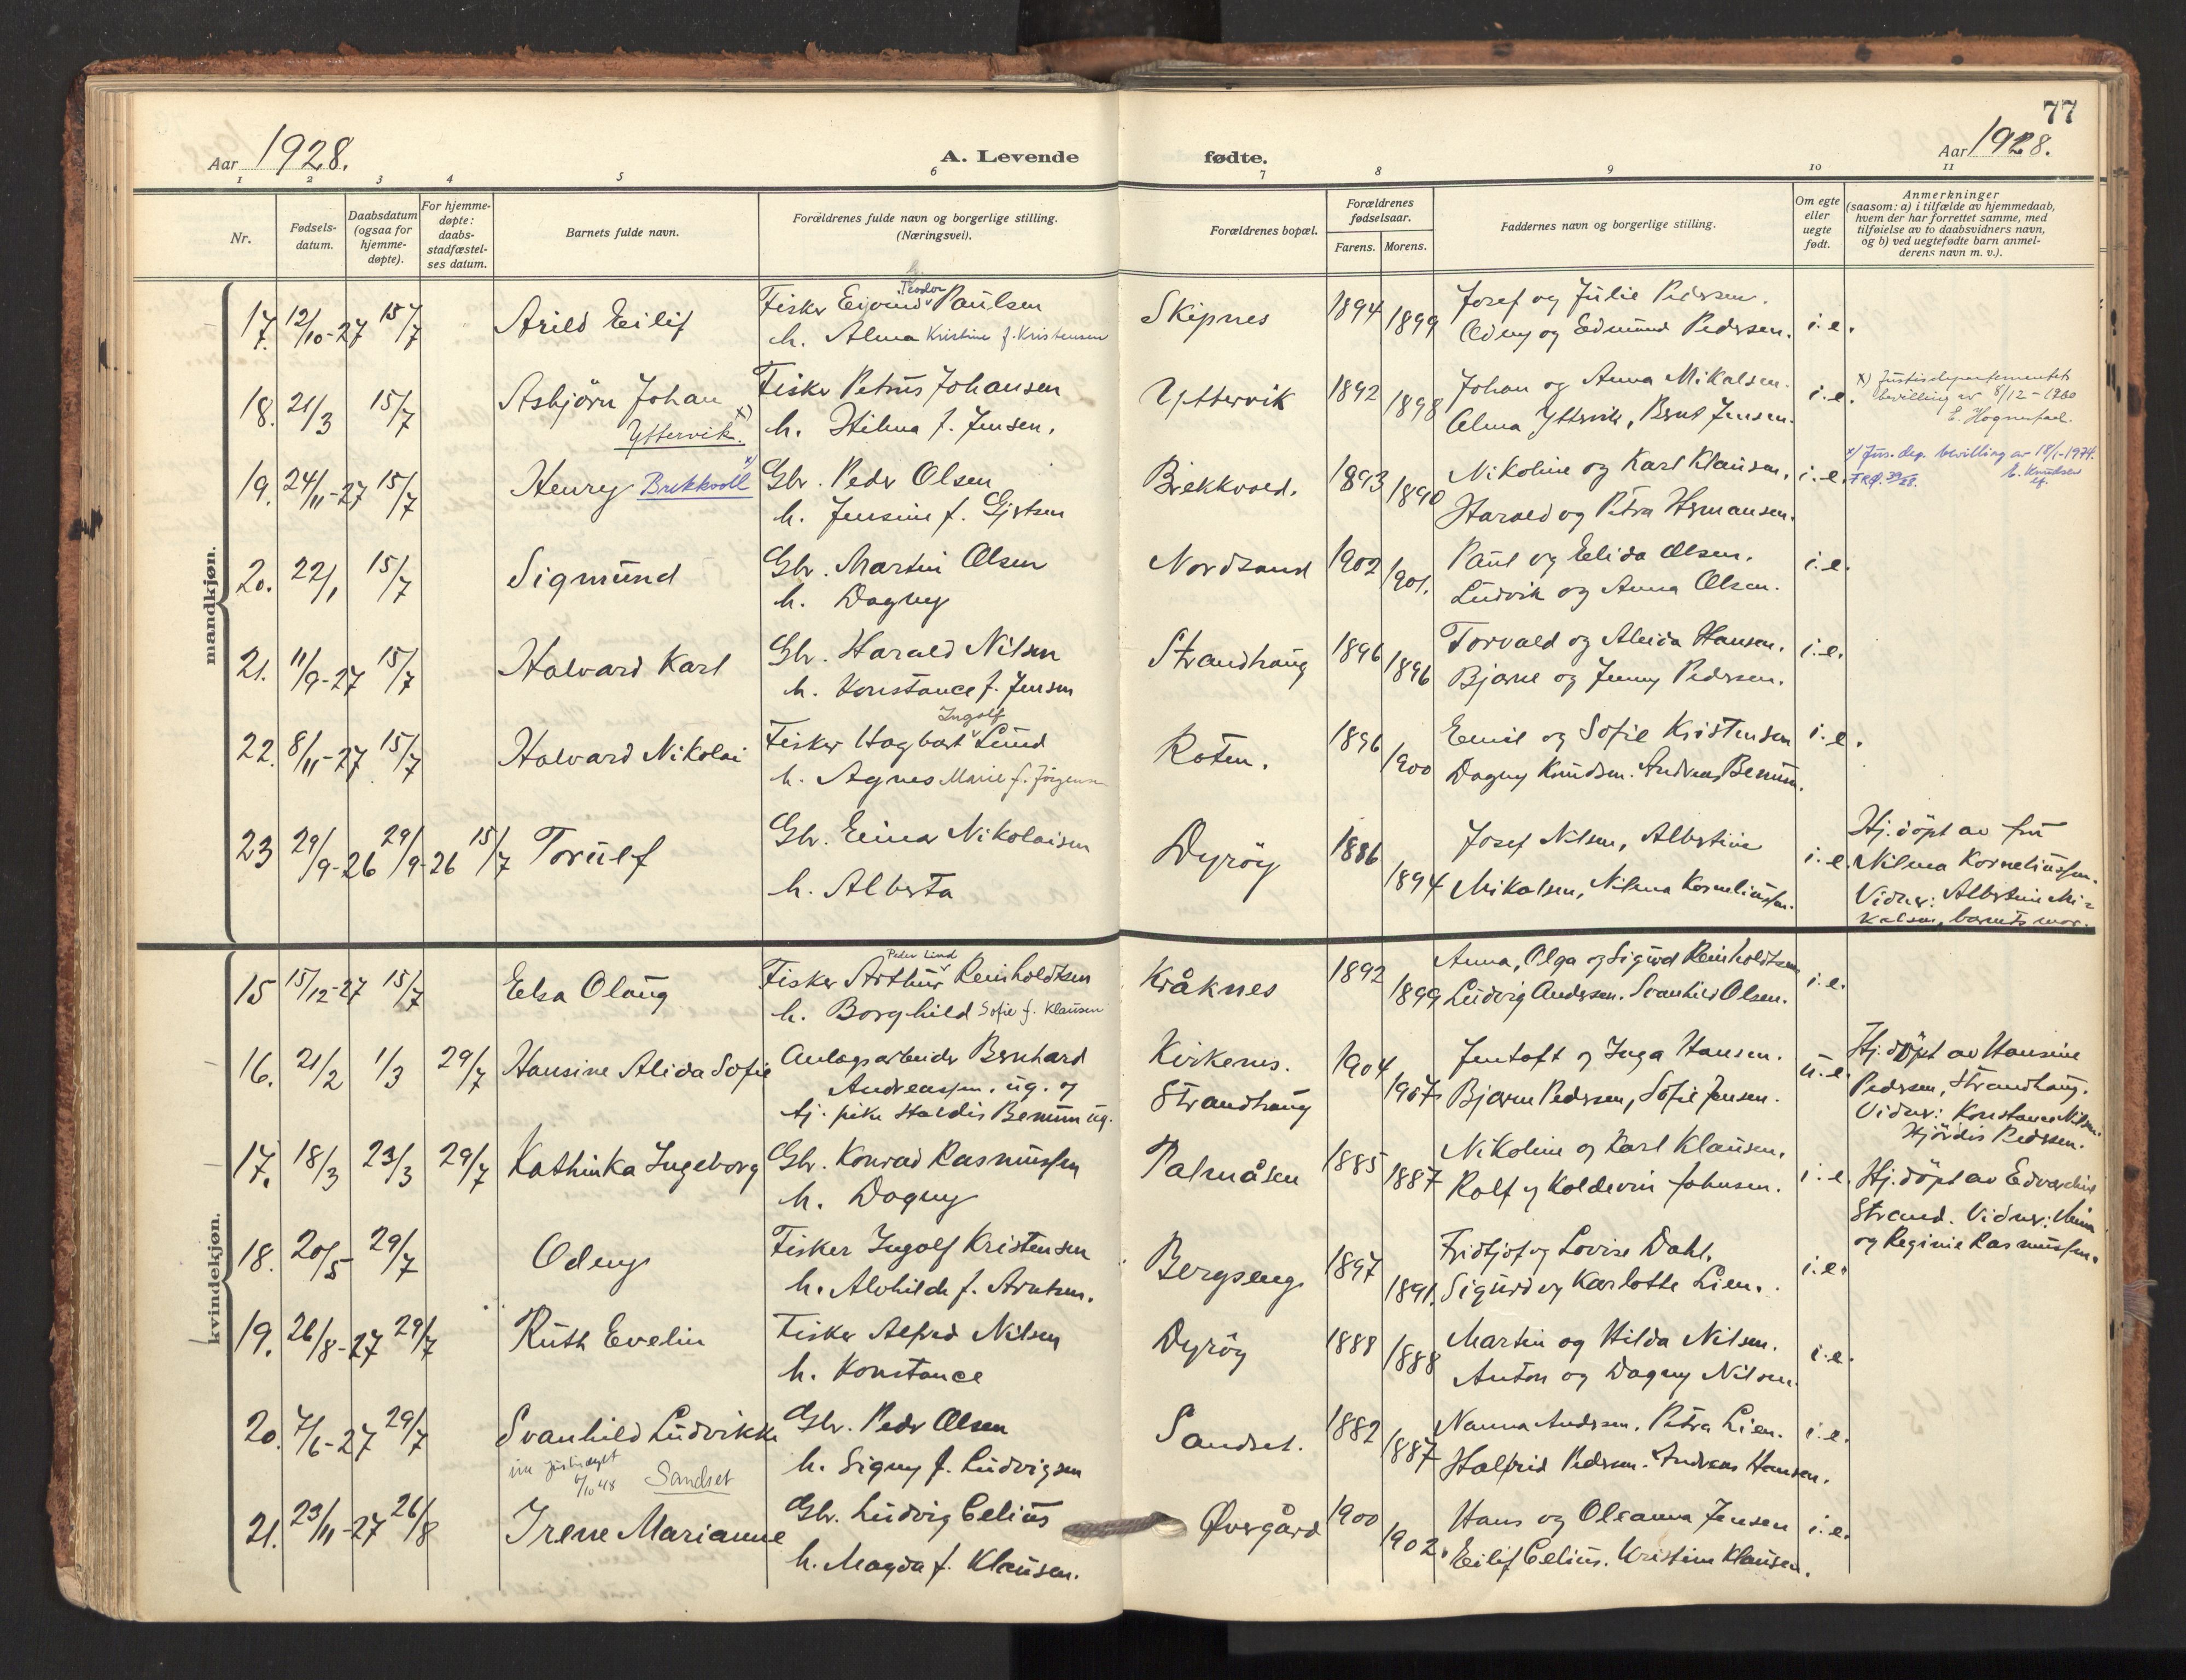 77
Aar 1928.
A. Levende fødte.
Aar 1928.
1 2 3 4 5 6 7 8 9 10 11
Nr.
Fødsels-
datum.
Daabsdatum
(ogsaa for
hjemme-
døpte).
For hjemme-
døpte:
daabs-
stadfæstel-
ses datum.
Barnets fulde navn.
Forældrenes fulde navn og borgerlige stilling.
(Næringsvei).
Forældrenes bopæl.
Forældrenes
fødselsaar.
Farens. Morens.
Faddernes navn og borgerlige stilling.
Om egte
eller
uegte
født.
Anmerkninger
(saasom: a) i tilfælde av hjemmedaab,
hvem der har forrettet samme, med
tilføielse av to daabsvidners navn,
og b) ved uegtefødte barn anmel-
derens navn m. v.).
mandkjøn.
17. 12/10-27 15/7 Arild Eilif Fisker Eivind Teodor Paulsen Skipnes 1894 Josef og Julie Pedersen. i. e.
h. Alma Kristine f. Kristensen 1899 Odny og Edmund Pedersen.
18. 21/3 15/7 Asbjörn Johan Fisker Petrus Johansen Yttervik 1892 Johan og Anna Mikalsen. i. e. x) Justisdepartementets
Yttervik. x) h. Hilma f. Jensen. 1898 Alma Yttervik, Bernt Jensen. bevilling av 8/12-1960
19. 24/11-27 15/7 Henry Brekkvoll x) Gbr. Peder Olsen Brekkvold. 1893 Nikoline og Karl Klausen. i. e. x) Jus. dep. bevilling av 18/1-1974.
h. Jensine f. Gjertsen 1890 Harald og Petra Hermansen. E. Knudsen
20. 22/1 15/7 Sigmund Gbr. Martin Olsen Nordsand 1902 Paul og Elida Olsen. i. e.
h. Dagny 1901. Ludvik og Anna Olsen.
21. 11/9-27 15/7 Halvard Karl Gbr. Harald Nilsen Strandhaug 1896 Torvald og Alida Hansen. i. e.
h. Konstance f. Jensen 1896 Bjarne og Jenny Pedersen.
22. 8/11-27 15/7 Halvard Nikolai Fisker Hagbart Ingolf Lund Roten. 1896 Emil og Sofie Kristensen i. e.
h. Agnes Marie f. Jörgensen 1900 Dagny Knudsen. Andreas Bemum.
23 29/9-26 29/9-26 15/7 Torulf Gbr. Einar Nikolaisen Dyröy 1886 Josef Nilsen, Albertine i. e. Hj. döpt av fru
h. Alberta 1894 Mikalsen, Nilma Korneliussen. Nilma Korneliussen.
Vidner: Albertine Mi-
kalsen, barnets mor.
kvindekjøn.
15 15/12-27 15/7 Elsa Olaug Fisker Arthur Peder Lind Reinholdtsen Kråknes 1892 Anna, Olga og Sigurd Reinholdtsen i. e.
h. Borghild Sofie f. Klausen 1899 Ludvig Andersen. Svanhild Olsen.
16. 21/2 1/3 29/7 Hansine Alida Sofie Anlegsarbeider Bernhard Kirkenes. 1904 Jentoft og Inga Hansen. u. e. Hj. döpt av Hansine
Andreassen, ug. og Strandhaug 1907 Bjarne Pedersen, Sofie Jensen. Pedersen, Strandhaug.
tj. pike Haldis Bemum ug. Vidner: Konstance Nilsen.
Hjördis Pedersen.
17. 18/3 23/3 29/7 Kathinka Ingeborg Gbr. Konrad Rasmussen Palmåsen 1885 Nikoline og Karl Klausen. i. e. Hj. döpt av Edvardine
h. Dagny 1887 Rolf og Koldevin Johnsen. Strand. Vidner:
og Reginie Rasmussen.
18. 20/5 29/7 Odny Fisker Ingolf Kristensen Bergseng 1897 Fridtjof og Lovise Dahl. i. e.
h. Alvhilde f. Arntsen. 1891. Sigurd og Karlotte Lien.
19. 26/8-27 29/7 Ruth Evelin Fisker Alfred Nilsen Dyröy 1888 Martin og Hilda Nilsen. i. e.
h. Konstance 1888 Anton og Dagny Nilsen.
20. 7/6-27 29/7 Svanhild Ludvikke Gbr. Peder Olsen Sandset. 1882 Nanna Andersen. Petra Lien. i. e.
6/10 48 Sandset h. Signy f. Ludvigsen 1887 Halfrid Pedersen. Andreas Hansen.
21. 23/11-27 26/8 Irene Marianne Gbr. Ludvig Celius Øvergård 1900 Hans og Oleanna Jensen i. e.
h. Magda f. Klausen. 1902. Eilif Celius. Kristine Klausen.